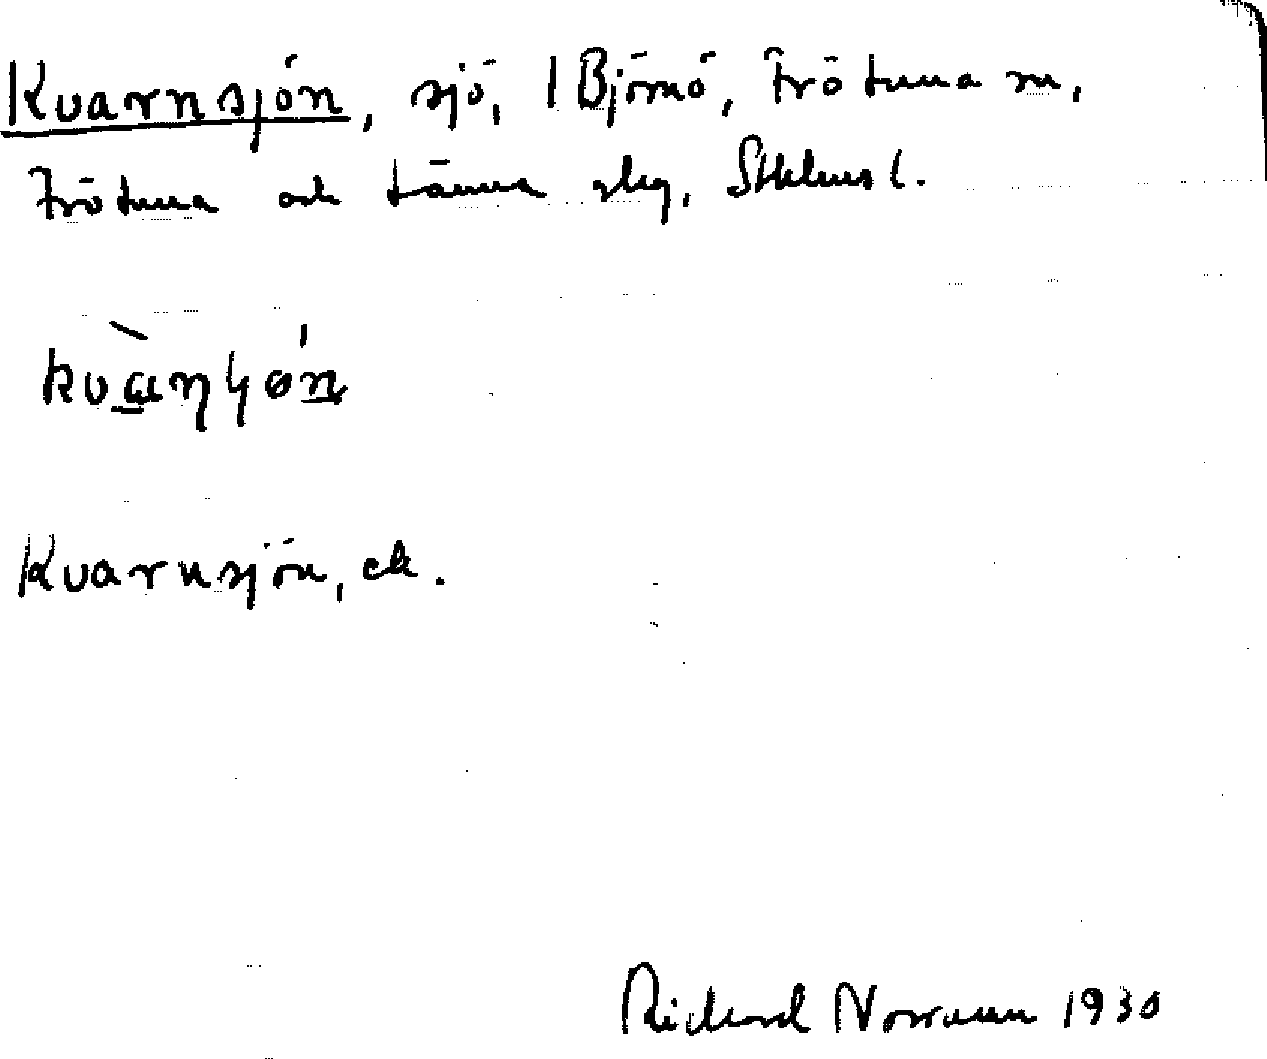 Kvarnsjön, sjö, 1 Björnö, Frötuna sn,
Frötuna och Länna skg, Sthlms l.
Kvarnsjön, ek.
Richard Norrman 1930